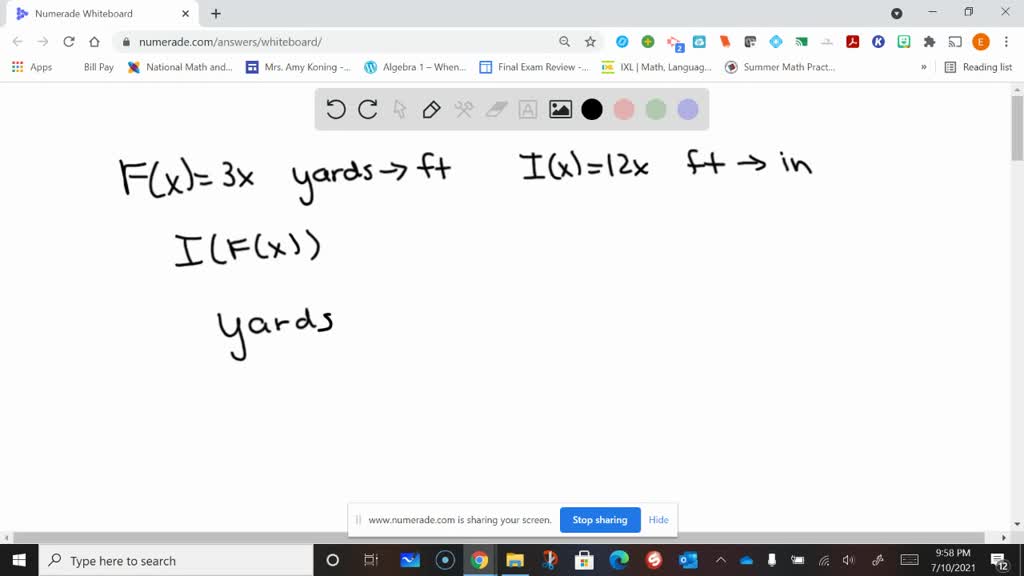 Numerade Whiteboard
numerade.com/answers/whiteboard/
Apps Bill Pay National Math and... Mrs. Amy Koning -... Algebra 1 – When... Final Exam Review -... IXL | Math, Languag... Summer Math Prac... » Reading list
F(x)=3x yards→ft I(x)=12x ft→in
I(F(x))
yards
www.numerade.com is sharing your screen. Stop sharing Hide
Type here to search
9:58 PM
7/10/2021